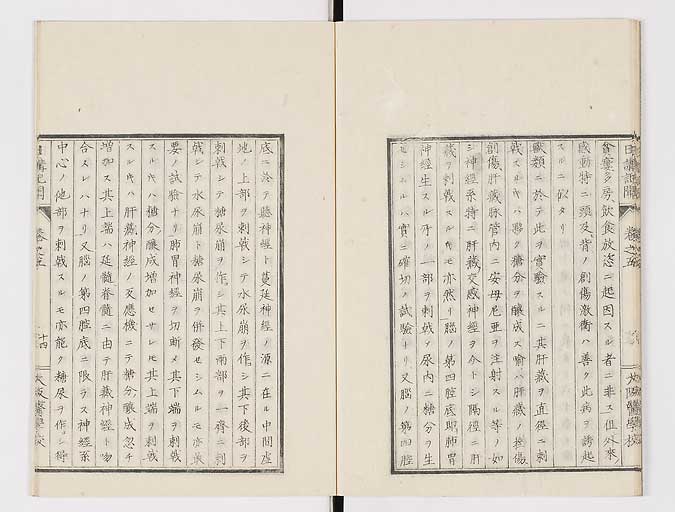 日講記聞
巻之五
大阪醫學校
貪婁多房飲食放恣ニ起因スル者ニ非ス但外來
感動特ニ頭及脊ノ創傷激衝ハ善ク此病ヲ誘起
スルニ似タリ
獸類ニ於テ此ヲ實驗スルニ其肝藏ヲ直徑ニ刺
戟スル𬼀ハ夥ク糖分ヲ釀成ス喩ハ肝藏ノ挫傷
創傷肝藏脉管内ニ安母尼亜ヲ注射スル等ノ如
シ神經系特ニ肝藏交感神經ヲ介トシ隔徑ニ肝
藏ヲ刺戟スルモ亦然リ腦ノ第四腔底即肺胃
神經生スル所ノ一部ヲ刺戟ヲ尿内ニ糖分ヲ生
セシムルハ實ニ確切ノ試驗トリ又腦ノ第四腔
底ニ於テ聽神經ト蔓延神經ノ源ニ在ル中間虚
地ノ上部ヲ刺戟シテ水尿崩ヲ作シ其下後部ヲ
刺戟シテ糖尿崩ヲ作シ其上下兩部ヲ一齊ニ刺
戟シテ水尿崩ト糖尿崩ヲ併發セシムルモ亦最
要ノ試驗ナリ肺胃神經ヲ切斷メ其下端ヲ刺戟
スルモハ糖分釀成增加セサレモ其上端ヲ刺戟
スルモハ肝藏神經ノ反應機ニテ糖分釀成忽チ
增加ス其上端ハ延髓脊髓ニ由テ肝藏神經ト吻
合スレハナリ又腦ノ第四腔底ニ限ラス神經系
中心ノ他部ヲ刺戟スルモ亦能ク糖尿ヲ作シ得
日講記聞
巻之五
十四
大阪醫學校